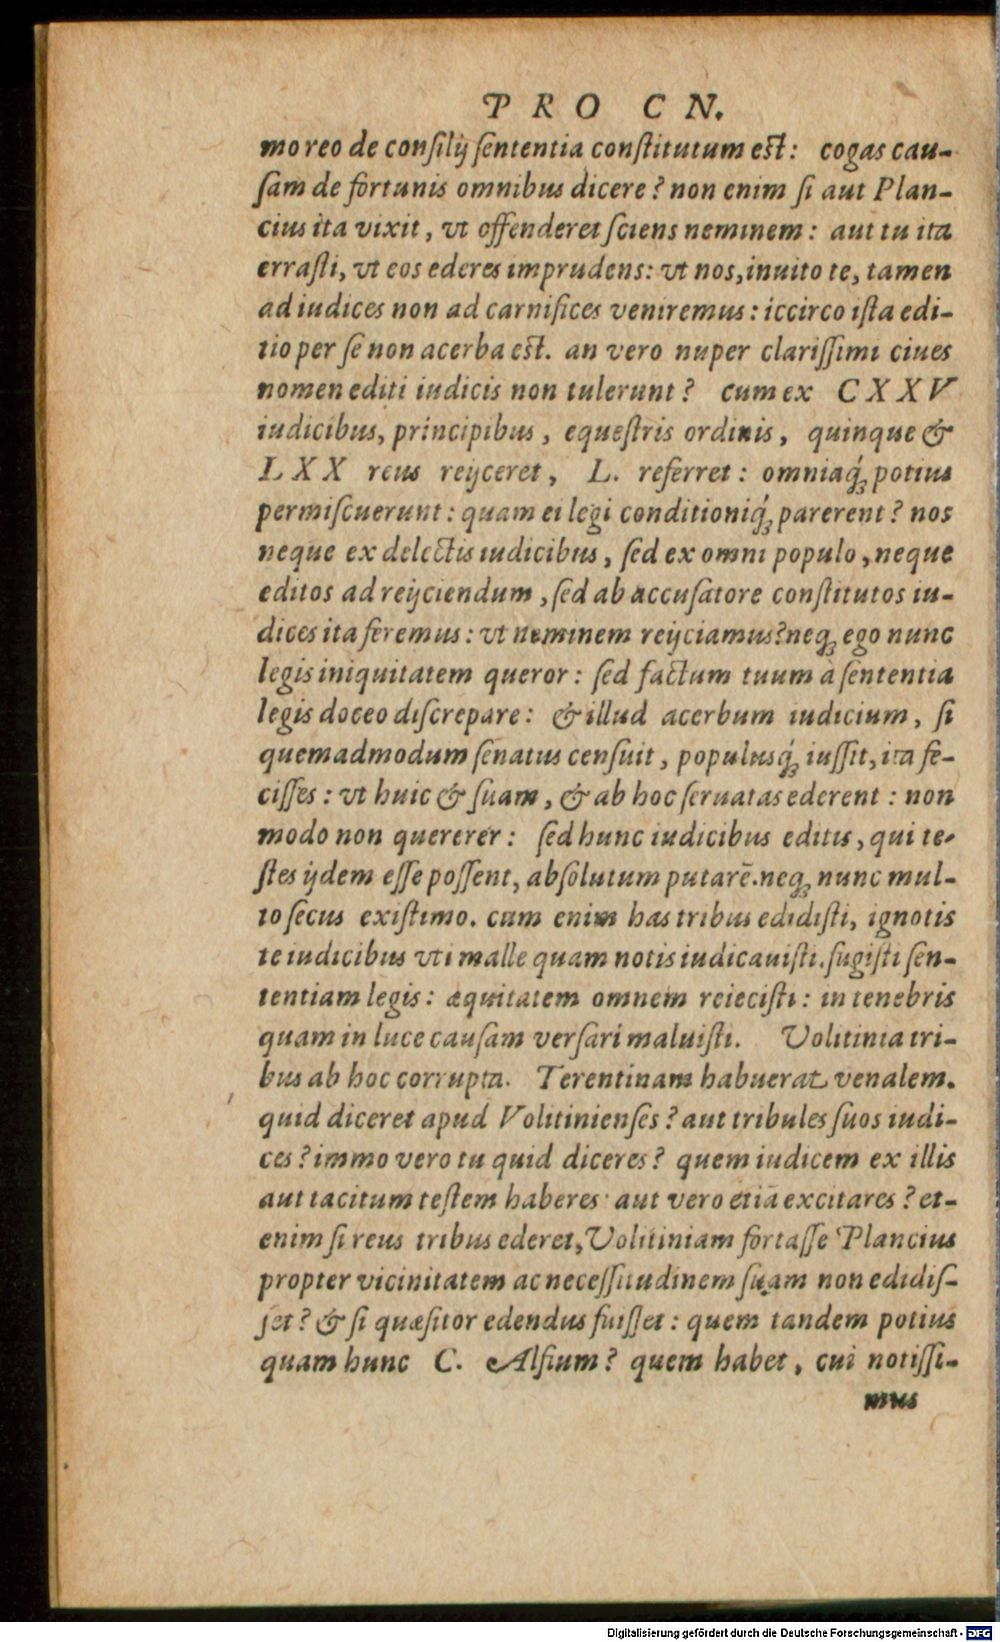 PRO CN.
mo reo de consilij sententia constitutum est: cogas cau-
sam de fortunis omnibus dicere? non enim si aut Plan-
cius ita vixit, vt offenderet sciens neminem: aut tu ita
errasti, vt eos ederes imprudens: vt nos, inuito te, tamen
ad iudices non ad carnifices veniremus: iccirco ista edi-
tio per se non acerba est. an vero nuper clarissimi ciues
nomen editi iudicis non tulerunt? cum ex CXXV
iudicibus, principibus, equestris ordinis, quinque &
LXX reus reijceret, L. referret: omniaq́; potius
permiscuerunt: quam ei legi conditioniq́; parerent? nos
neque ex delectis iudicibus, sed ex omni populo, neque
editos ad reijciendum, sed ab accusatore constitutos iu-
dices ita feremus: vt neminem reijciamus? neq; ego nunc
legis iniquitatem queror: sed factum tuum à sententia
legis doceo discrepare: & illud acerbum iudicium, si
quemadmodum senatus censuit, populusq́; iussit, ita fe-
cisses: vt huic & suam, & ab hoc seruatas ederent: non
modo non quererer: sed hunc iudicibus editis, qui te-
stes ijdem esse possent, absolutum putarē. neq; nunc mul-
to secus existimo. cum enim has tribus edidisti, ignotis
te iudicibus vti malle quam notis iudicauisti. fugisti sen-
tentiam legis: æquitatem omnem reiecisti: in tenebris
quam in luce causam versari maluisti. Volitinia tri-
bus ab hoc corrupta. Terentinam habuerat venalem.
quid diceret apud Volitinienses? aut tribules suos iudi-
ces? immo vero tu quid diceres? quem iudicem ex illis
aut tacitum testem haberes aut vero etiā excitares? et-
enim si reus tribus ederet, Volitiniam fortasse Plancius
propter vicinitatem ac necessitudinem suam non edidis-
set? & si quæsitor edendus fuisset: quem tandem potius
quam hunc C. Alfium? quem habet, cui notissi-
mus
Digitalisierung gefördert durch die Deutsche Forschungsgemeinschaft - DFG